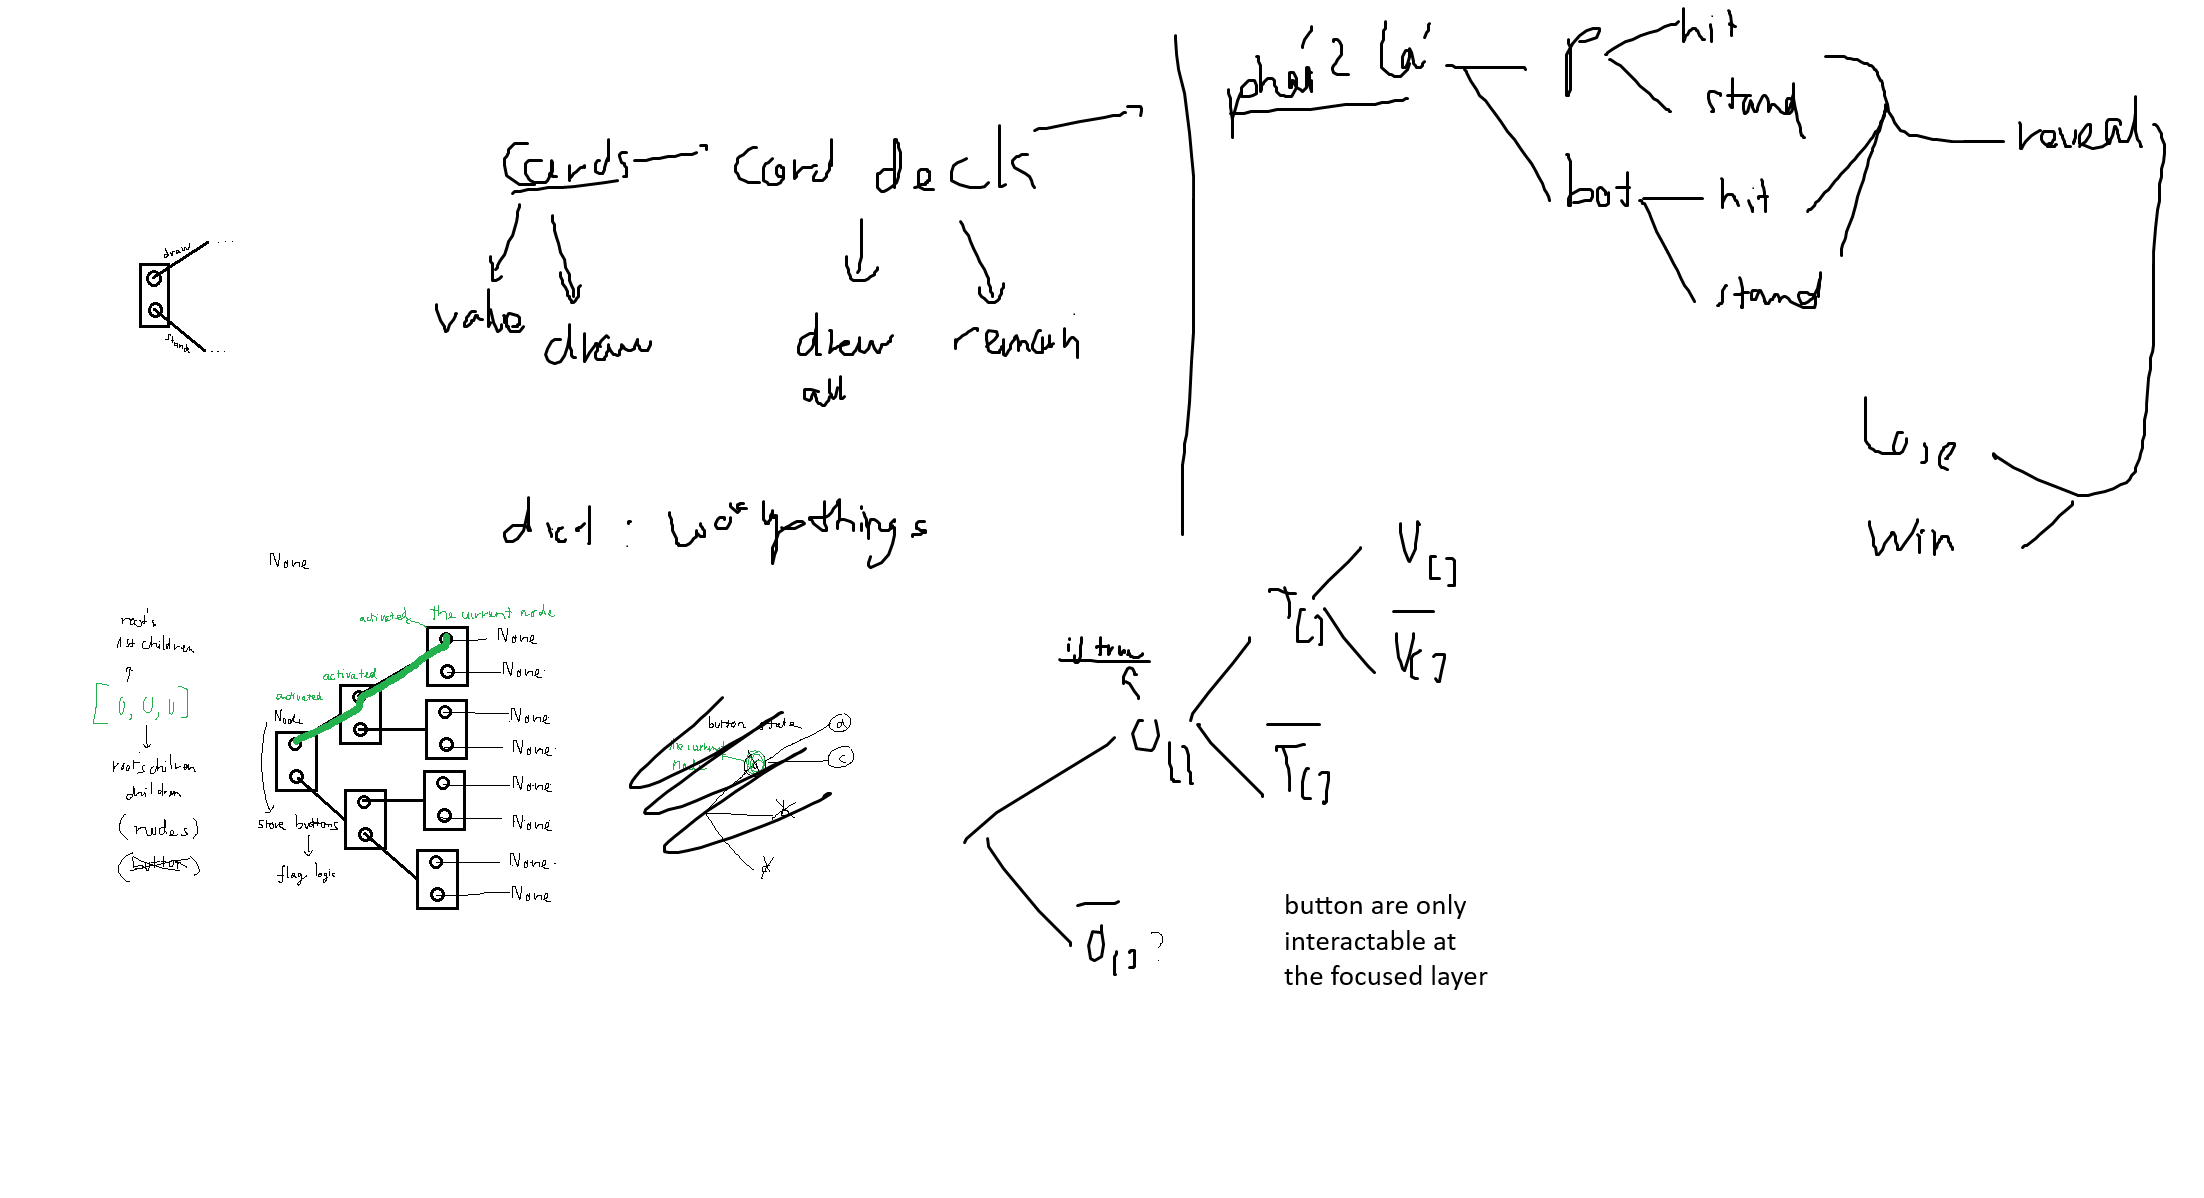 Cards
Card deck
value
draw
draw
all
remain
phát 2 lá
P
hit
stand
bot
hit
stand
reveal
Lose
Win
draw
stand
...
...
dict :
None
root's
1st children
[0, 0, 0]
root's children
children
(nodes)
(button)
activated
the current node
activated
activated
Node
store buttons
flag logic
None
None
None
None
None
None
None
None
button state
the current
node
d
c
if true
O[]
T[]
V[]
V[]
T[]
O[] ?
button are only
interactable at
the focused layer